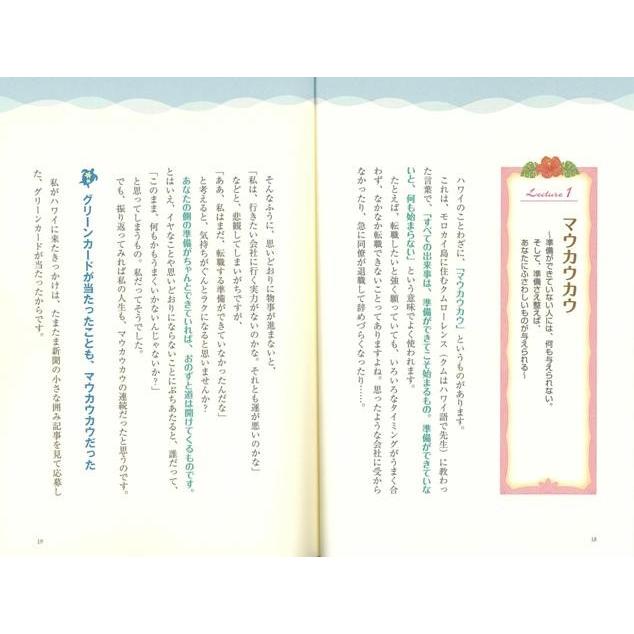 Lecture 1
マウカウカウ
〜準備ができていない人には、何も与えられない。
そして、準備さえ整えば、
あなたにふさわしいものが与えられる〜
ハワイのことわざに、「マウカウカウ」というものがあります。
これは、モロカイ島に住むクムローレンス（クムはハワイ語で先生）に教わっ
た言葉で、「すべての出来事は、準備ができてこそ始まるもの。準備ができていな
いと、何も始まらない」という意味でよく使われます。
たとえば、転職したいと強く願っていても、いろいろなタイミングがうまく合
わず、なかなか転職できないことってありますよね。思ったような会社に受から
なかったり、急に同僚が退職して辞めづらくなったり……。
18
そんなふうに、思いどおりに物事が進まないと、
「私は、行きたい会社に行く実力がないのかな。それとも運が悪いのかな」
などと、悲観してしまいがちですが、
「ああ、私はまだ、転職する準備ができていなかったんだな」
と考えると、気持ちがぐんとラクになると思いませんか？
あなたの側の準備がちゃんとできていれば、おのずと道は開けてくるものです。
とはいえ、イヤなことや思いどおりにならないことにぶちあたると、誰だって、
「このまま、何もかもうまくいかないんじゃないか？」
と思ってしまうもの。私だってそうでした。
でも、振り返ってみれば私の人生も、マウカウカウの連続だったと思うのです。
グリーンカードが当たったことも、マウカウカウだった
私がハワイに来たきっかけは、たまたま新聞の小さな囲み記事を見て応募し
た、グリーンカードが当たったからです。
19